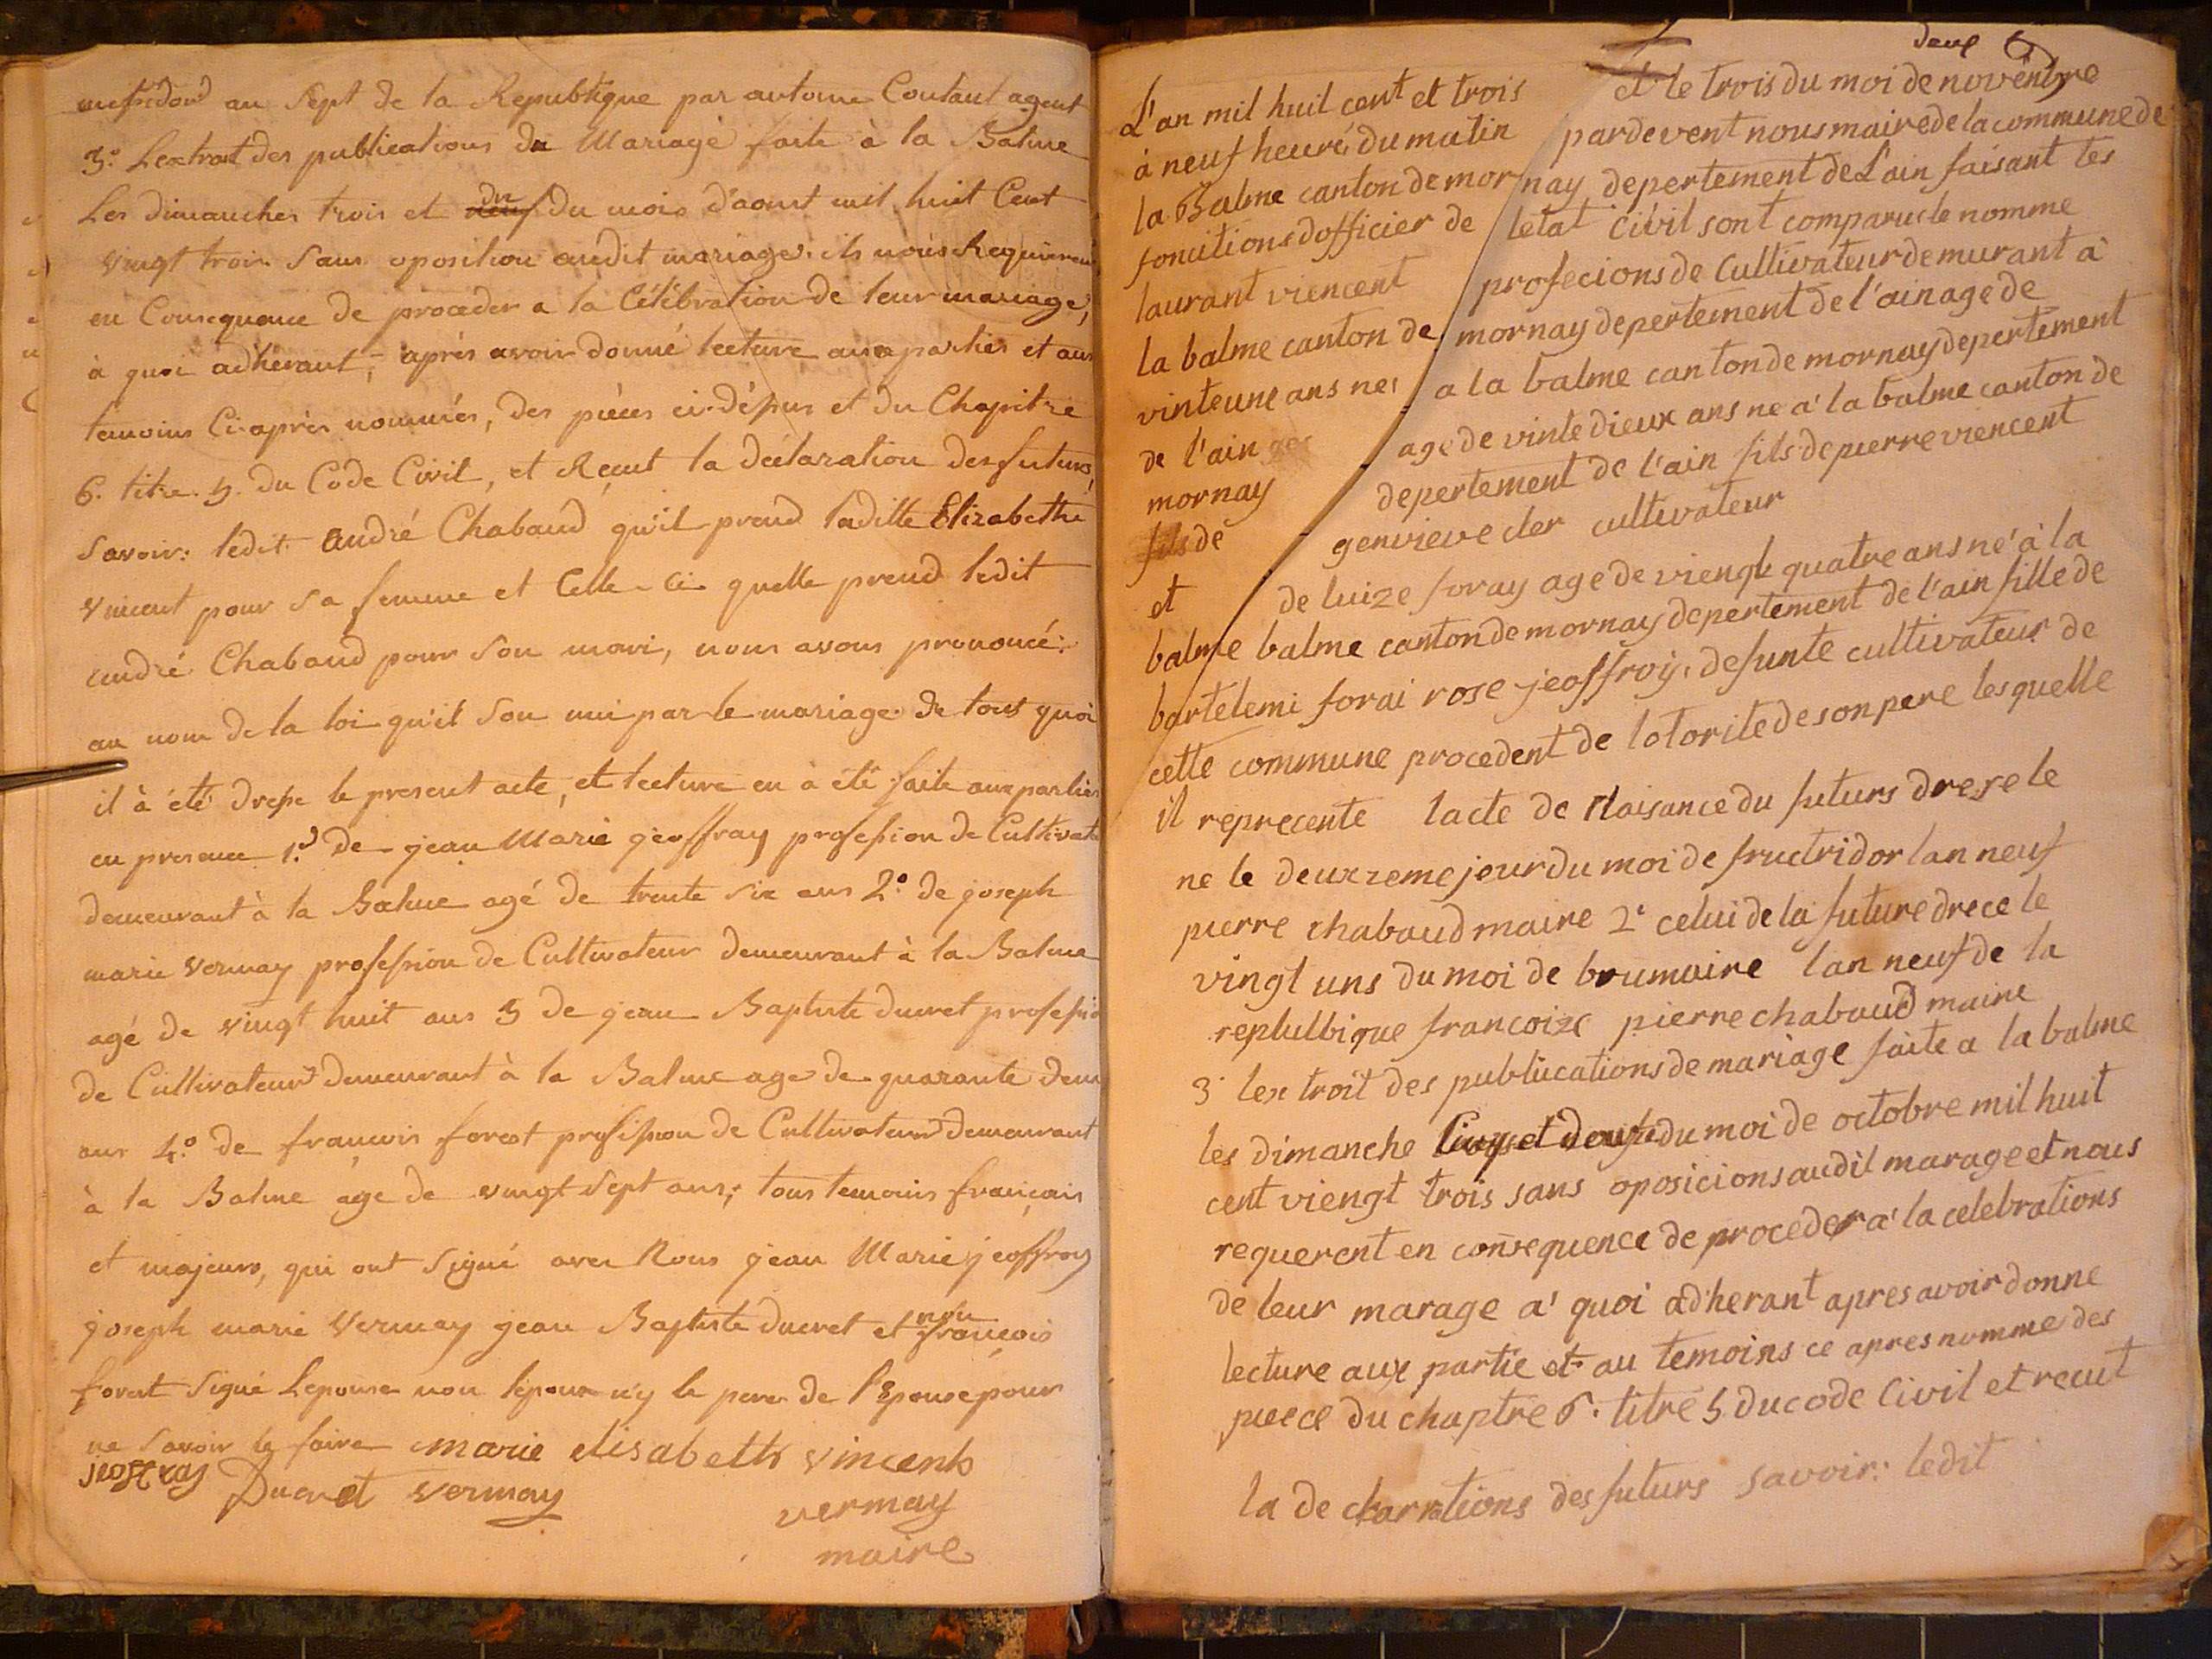 messidord an Sept de la Republique par antoine Coutant agent
3.° Lextrait des publications du Mariage faite à la Balme
Les dimanches trois et dix du mois d'aoust mil huit Cent
vingt trois Sans oposition audit mariage. ils nous Requierent
en Consequance de proceder a la Célébration de leur mariage,
à quoi adhérant, après avoir donné lecture aux parties et aux
temoins Ci-après nommés, des pièces ci-dessus et du Chapitre
6. titre. 5. du Code Civil, et Reçut la déclaration des futurs,
Savoir: ledit andré Chabaud qu'il prend ladille Elizabethe
Vincent pour Sa femme et Celle-Ci quelle prend ledit
andré Chabaud pour Son mari, nous avons prononcé:
au nom de la loi qu'il Son uni par le mariage de tout quoi
il à été dressé le present acte, et lecture en à été faite aux parties
en presence 1.° de jean Marie géoffray profession de Cultivate
demeurant à la Balme agé de trente Six ans 2.° de joseph
marie Vermay profession de Cultivateur demeurant à la Balme
agé de vingt huit ans 3 de jean Baptiste ducret professio
de Cultivateur demeurant à la Balme age de quarante deux
ans 4.° de françois forest profession de Cultivateur demeurant
à la Balme âge de vingt Sept ans; tous temoins français
et majeurs, qui ont Signé avec Nous jean Marie jeoffroy
joseph marie Vermay jean Baptiste ducret et non françois
forest Signé Lepouse non lépoux n'y le pere de l'Epouse pour
ne Savoir le faire marie elisabeth vincent
jeoffray Ducret vermay
vermay
maire
deux
L'an mil huil cent et trois et le trois du moi de novenbre
à neuf heuré, du matin pardevent nous maire de la commune de
la Balme canton de mornay depertement de L'ain faisant les
foncitions dofficier de letat civil sont comparus le nomme
laurant viencent profecions de Cultivateur demurant à
la balme canton de mornay depertement de l'ain age de
vinteune ans nes a la balme canton de mornay depertement
de l'ain age de vinte dieux ans ne a' la balme canton de
mornay depertement de l'ain fils de pierre viencent
fils de genvieve cler cultivateur
et de luize foray age de viengt quatre ans ne' à la
balme balme canton de mornay depertement de l'ain fille de
bartelemi forai rose jeoffroy. defunte cultivateur de
cette commune procedent de lotorite de son pere lesquelle
il reprecente lacte de Naisance du futurs drese le
ne le deuxzeme jour du moi de fructridor lan neuf
pierre chabaud maire 2° celui de la future drece le
vingt uns du moi de brumaire lan neuf de la
replulbique francoize pierre chabaud maire
3° lex troit des publiications de mariage faite a la balme
les dimanche Cinq et douze du moi de octobre mil huit
cent viengt trois sans oposicions audit marage et nous
requerent en consequence de proceder a' la celebrations
de leur marage a' quoi adherant apres avoir donne
lecture aux partie et au temoins ce apres nomme des
piece du chaptre 6. titre 5. du code Civil et recut
la de charrations des futurs savoir: ledit